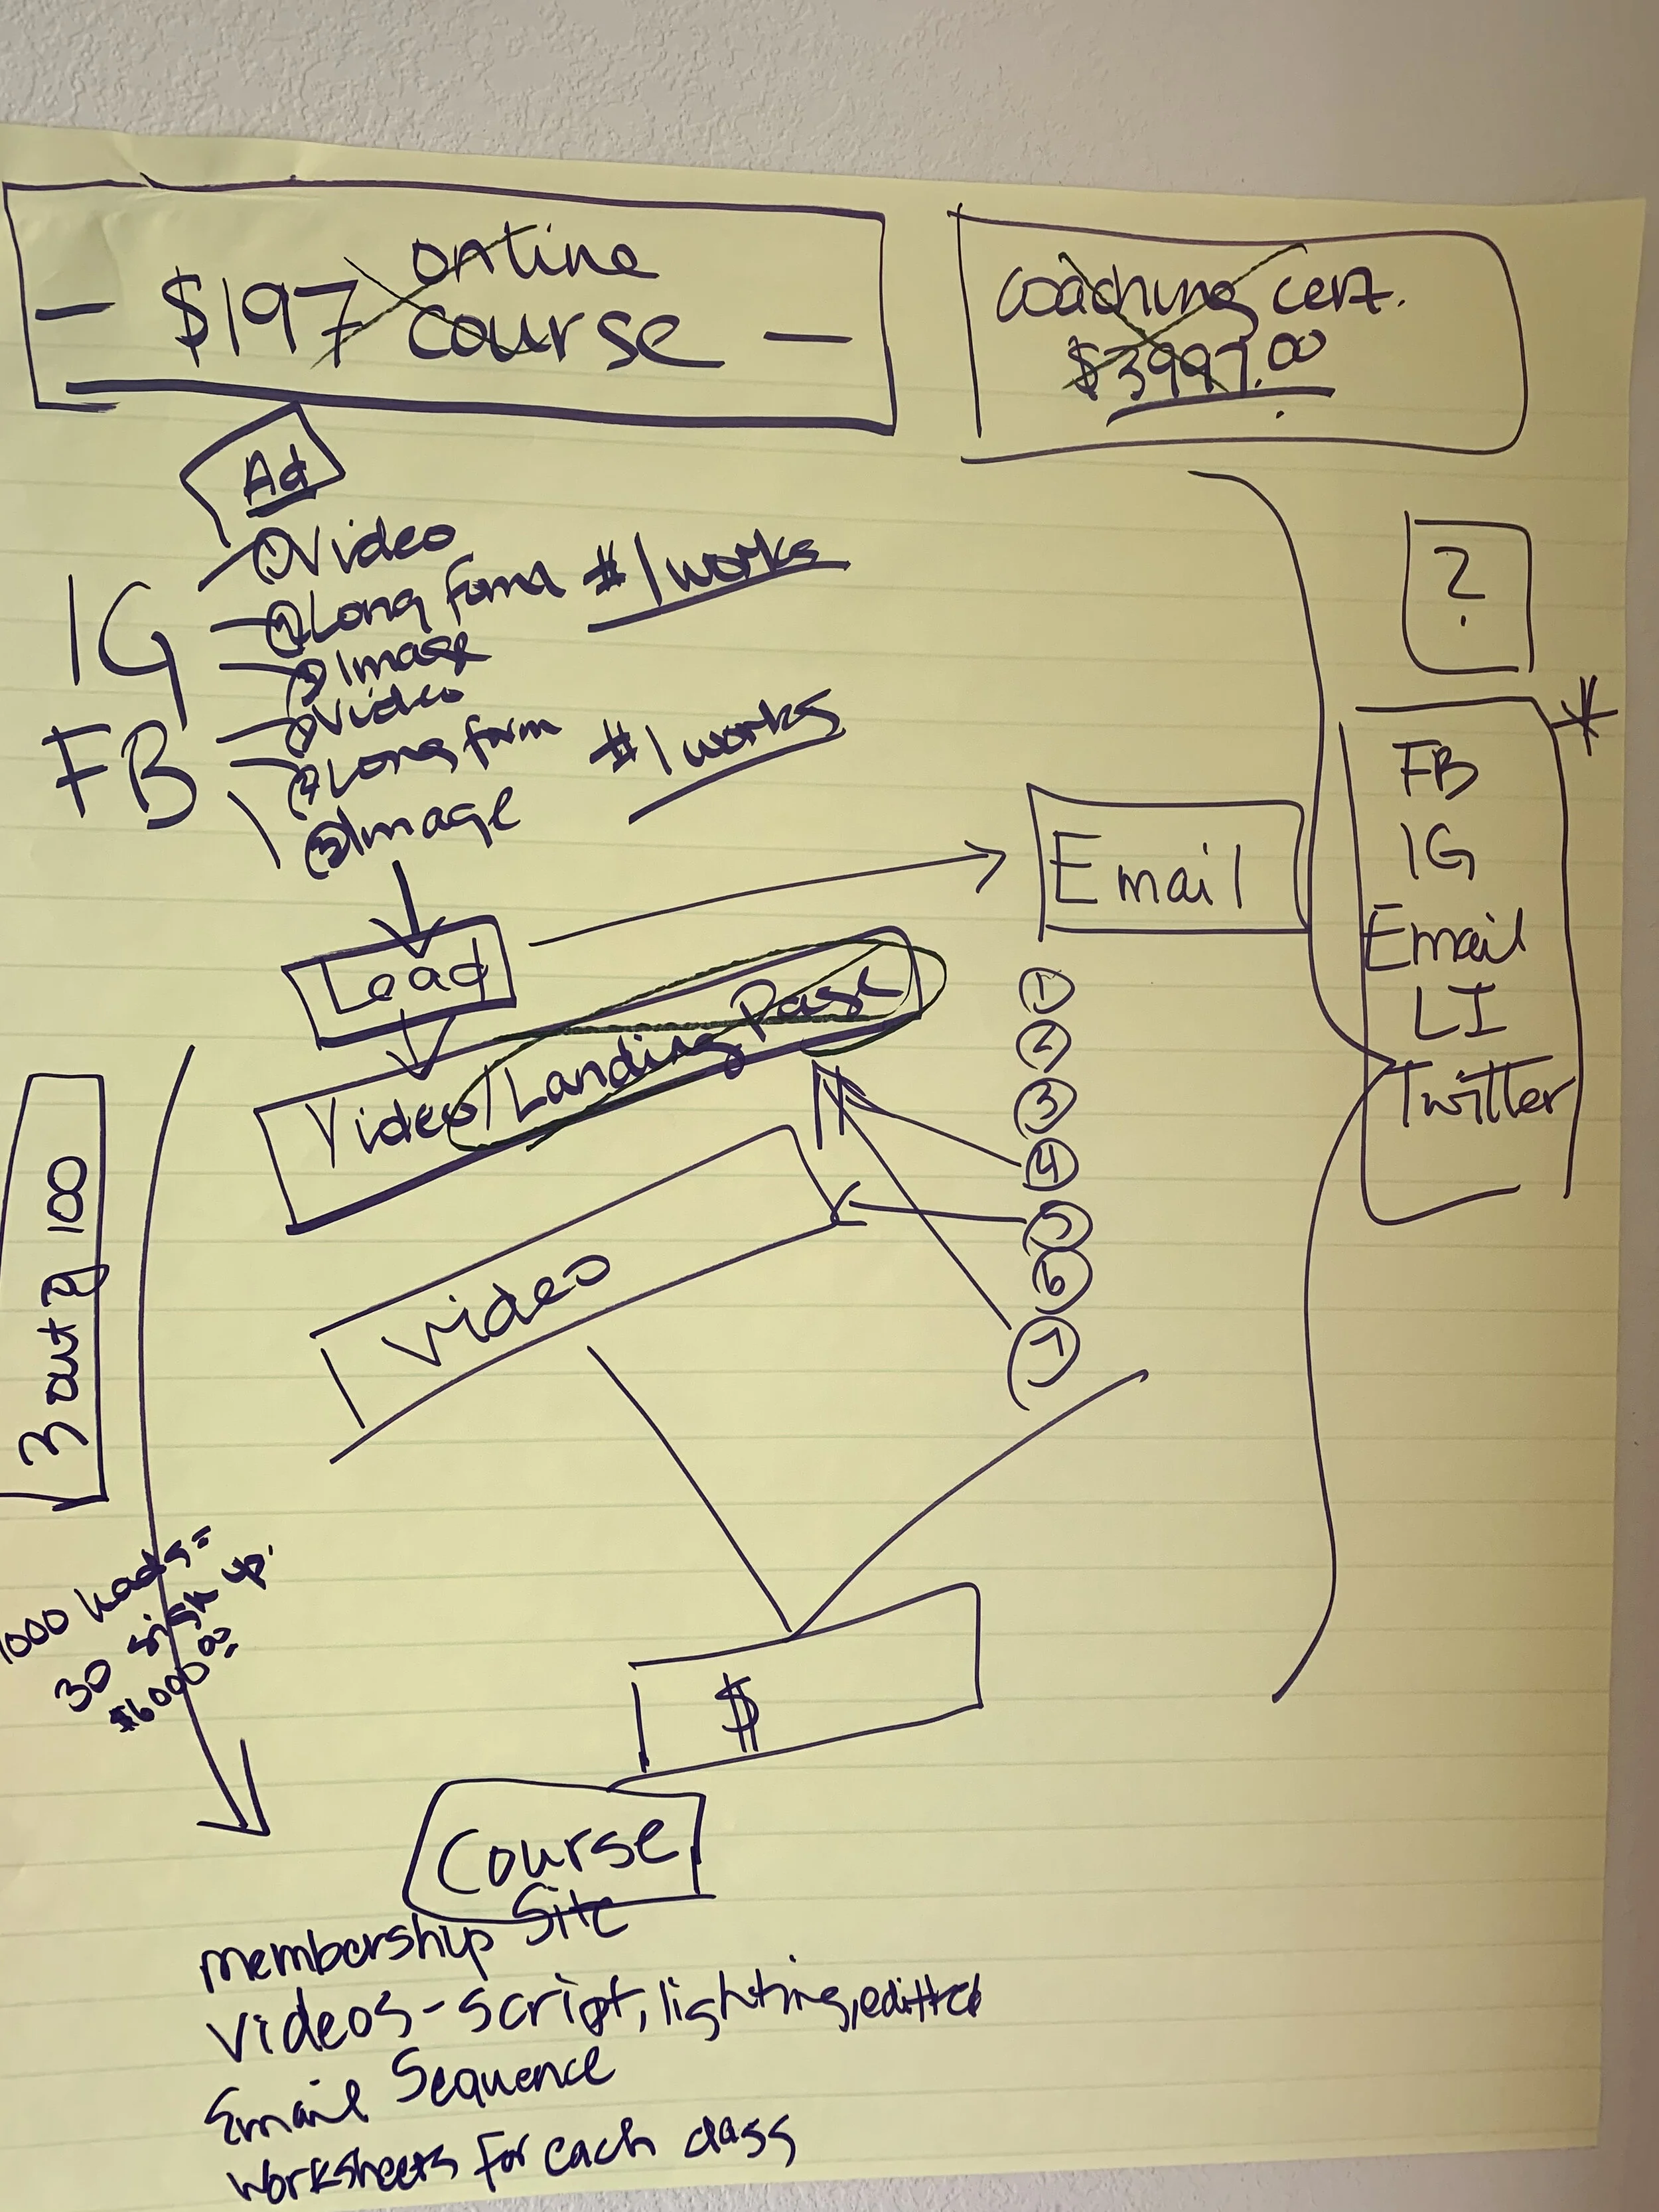 online
- $197 course -
coaching cert.
$3997.00
Ad
IG
① Video
② Long Form #1 works
③ Image
FB
① Video
② Long form #1 works
③ Image
Lead
Email
Video/Landing Page
Video
①
②
③
④
⑤
⑥
⑦
?
*
FB
IG
Email
LI
Twitter
3 out of 100
1000 leads =
30 sign up.
$6000.00
$
Course
membership Site
Videos - script, lighting, editted
Email Sequence
worksheets for each class